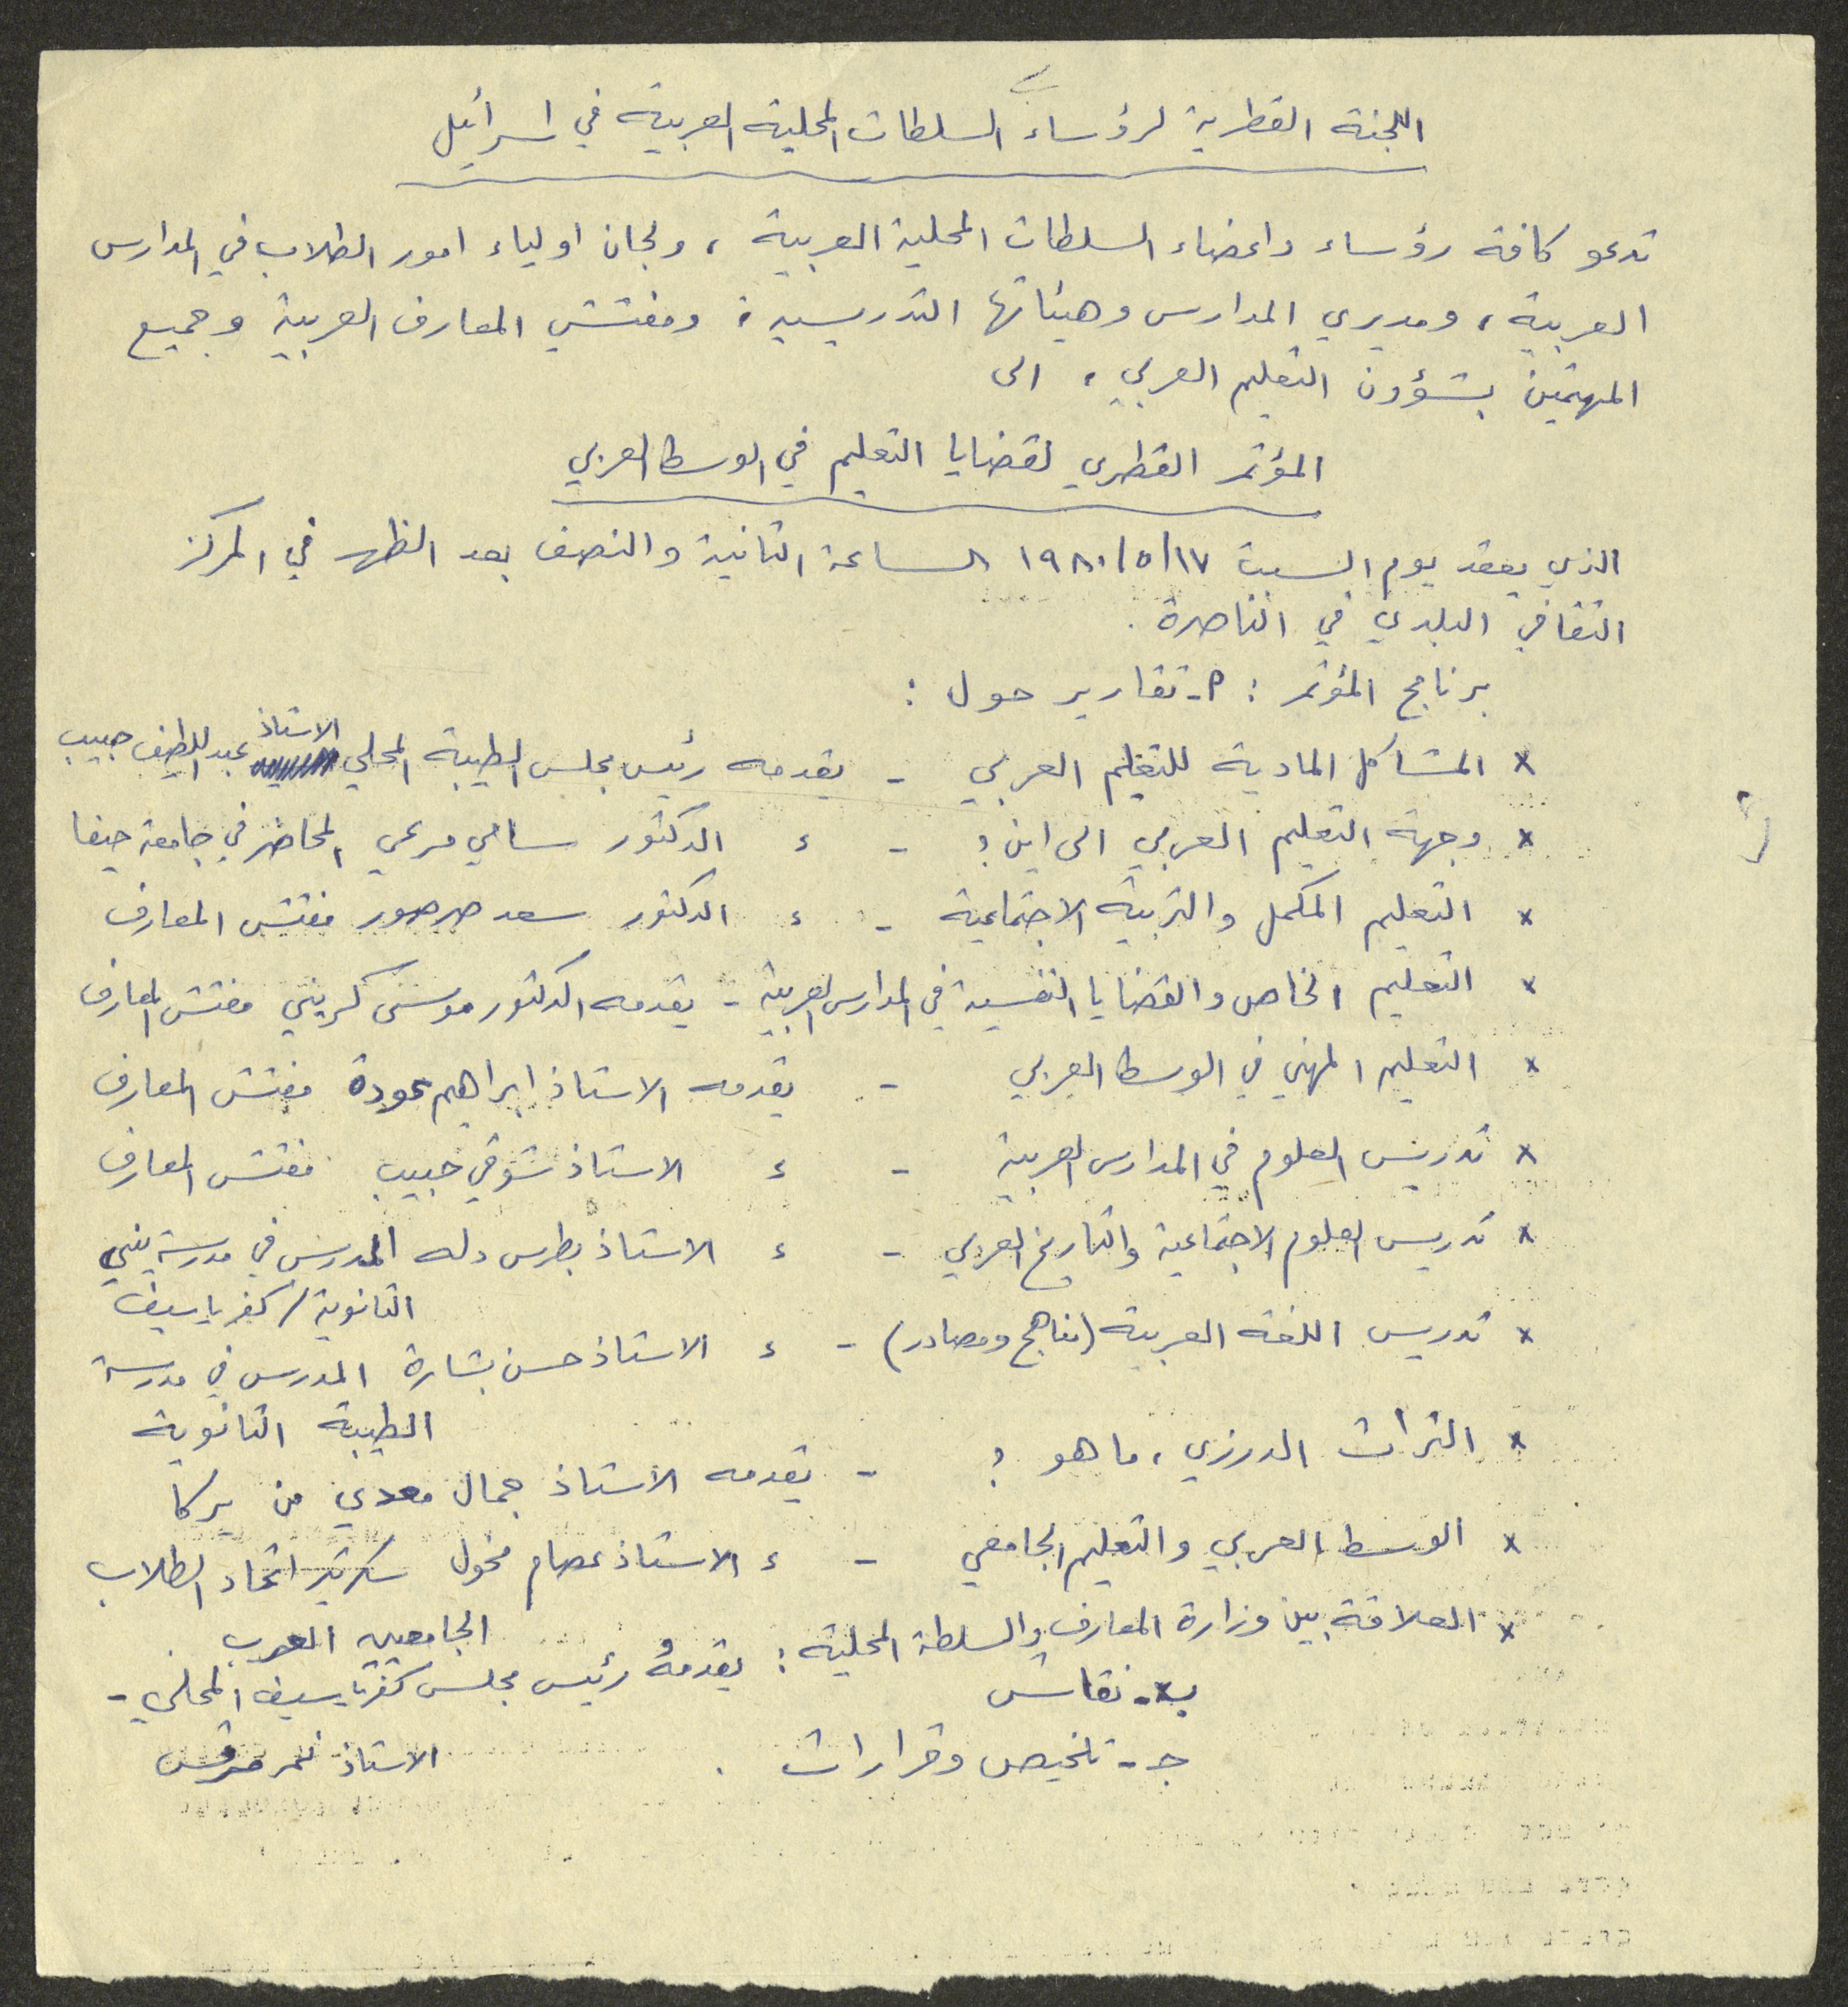 اللجنة القطرية لرؤساء السلطات المحلية العربية في اسرائيل
تدعو كافة رؤساء واعضاء السلطات المحلية العربية ، ولجان اولياء امور الطلاب في المدارس
العربية ، ومديري المدارس وهيئاتها التدريسية ، ومفتشي المعارف العربية وجميع
المهتمين بشؤون التعليم العربي ، الى
المؤتمر القطري لقضايا التعليم في الوسط العربي
الذي يعقد يوم السبت ١٩٨٠/٥/١٧ الساعة الثانية والنصف بعد الظهر في المركز
الثقافي البلدي في الناصرة .
برنامج المؤتمر : م - تقارير حول :
x المشاكل المادية للتعليم العربي - يقدمه رئيس مجلس الطيبة المحلي الاستاذ عبد اللطيف حبيب
x وجهة التعليم العربي الى اين ؟ - ء الدكتور سامي مرعي المحاضر في جامعة حيفا
x التعليم المكمل والتربية الاجتماعية - ء الدكتور سعد صرصور مفتش المعارف
x التعليم الخاص والقضايا النفسية في المدارس العربية - يقدمه الدكتور موسى كريني مفتش المعارف
x التعليم المهني في الوسط العربي - يقدمه الاستاذ ابراهيم عودة مفتش المعارف
x تدريس العلوم في المدارس العربية - ء الاستاذ شوقي حبيب مفتش المعارف
x تدريس العلوم الاجتماعية والتاريخ العربي - ء الاستاذ بطرس دله المدرس في مدرسة يني
الثانوية / كفر ياسيف
x تدريس اللغة العربية (مناهج ومصادر) - ء الاستاذ حسن بشارة المدرس في مدرسة
الطيبة الثانوية
x التراث الدرزي ، ما هو ؟ - يقدمه الاستاذ جمال معدي من يركا
x الوسط العربي والتعليم الجامعي - ء الاستاذ عصام مخول سكرتير اتحاد الطلاب
الجامعيين العرب .
x العلاقة بين وزارة المعارف والسلطة المحلية : يقدمه رئيس مجلس كفر ياسيف المحلي -
الاستاذ نمر مرقس
ب - نقاش
جـ - تلخيص وقرارات .